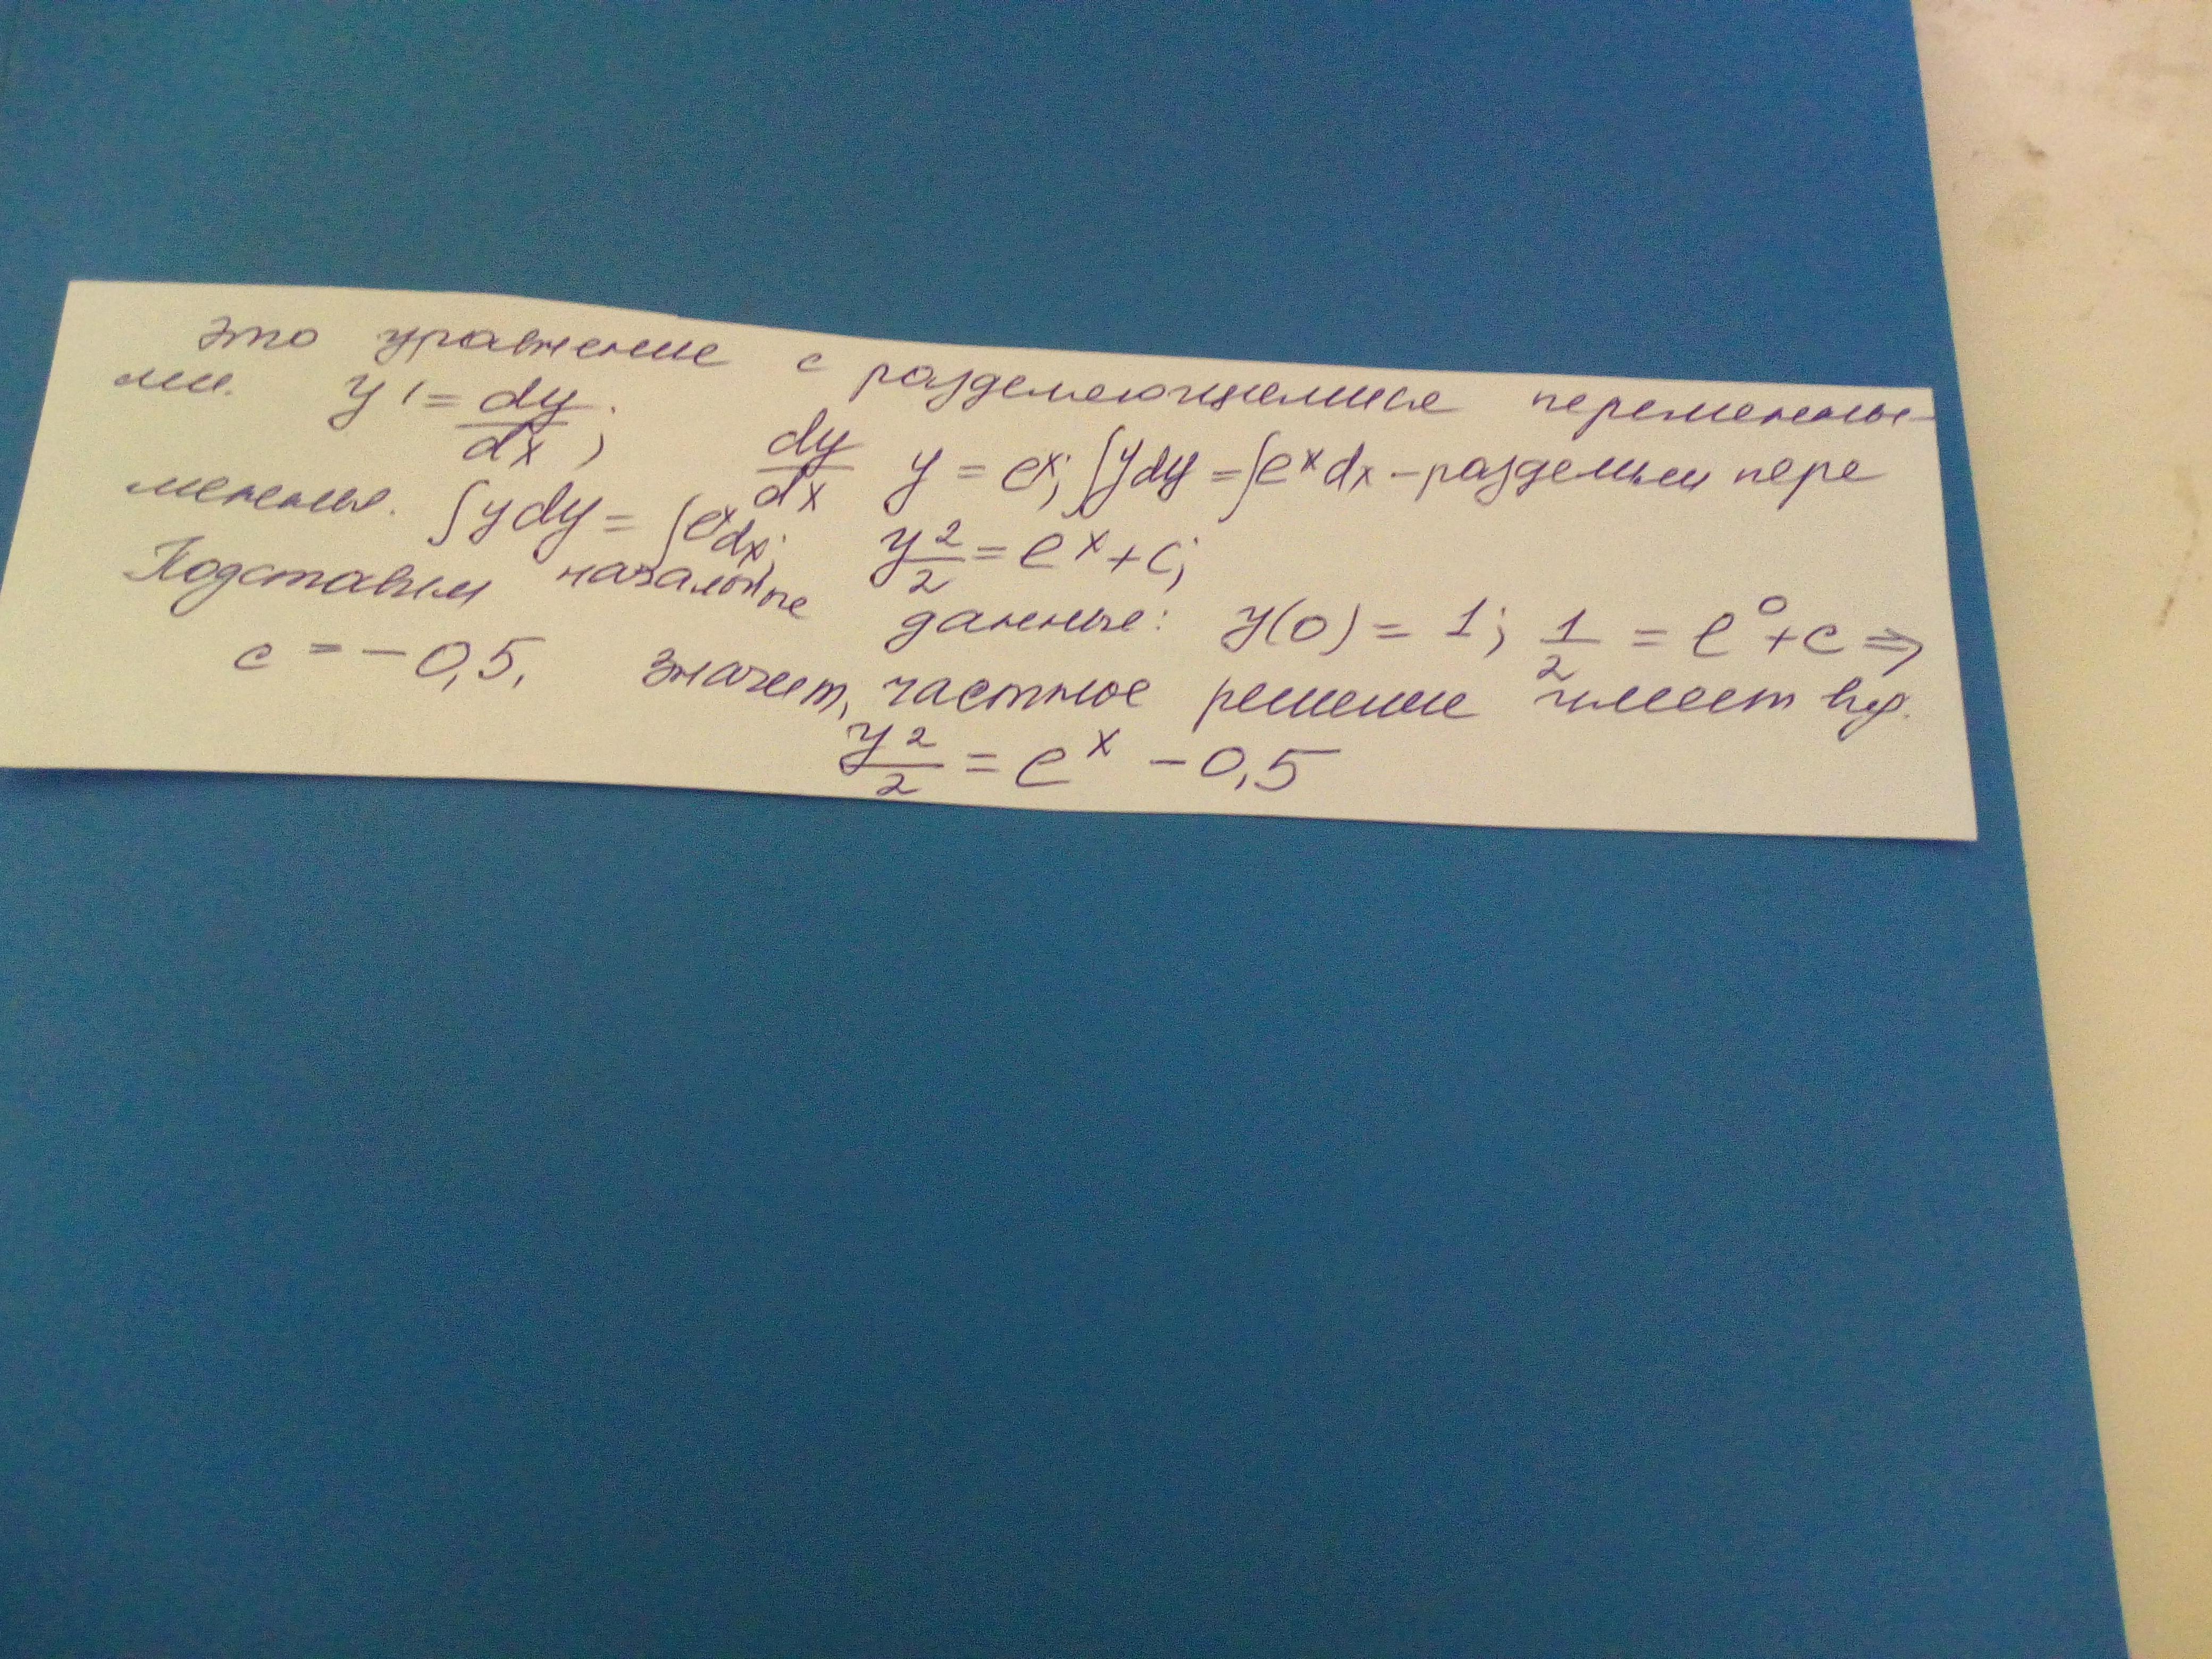 это уравнение с разделяющимися переменны-
ми. y' = dy/dx; dy/dx y = e^x; ∫ydy = ∫e^x dx – разделим пере
менные. ∫ydy = ∫e^x dx; y²/2 = e^x + c;
Подставим начальные данные: y(0) = 1; 1/2 = e^0 + c ⇒
c = -0,5. значит, частное решение имеет вид.
y²/2 = e^x - 0,5